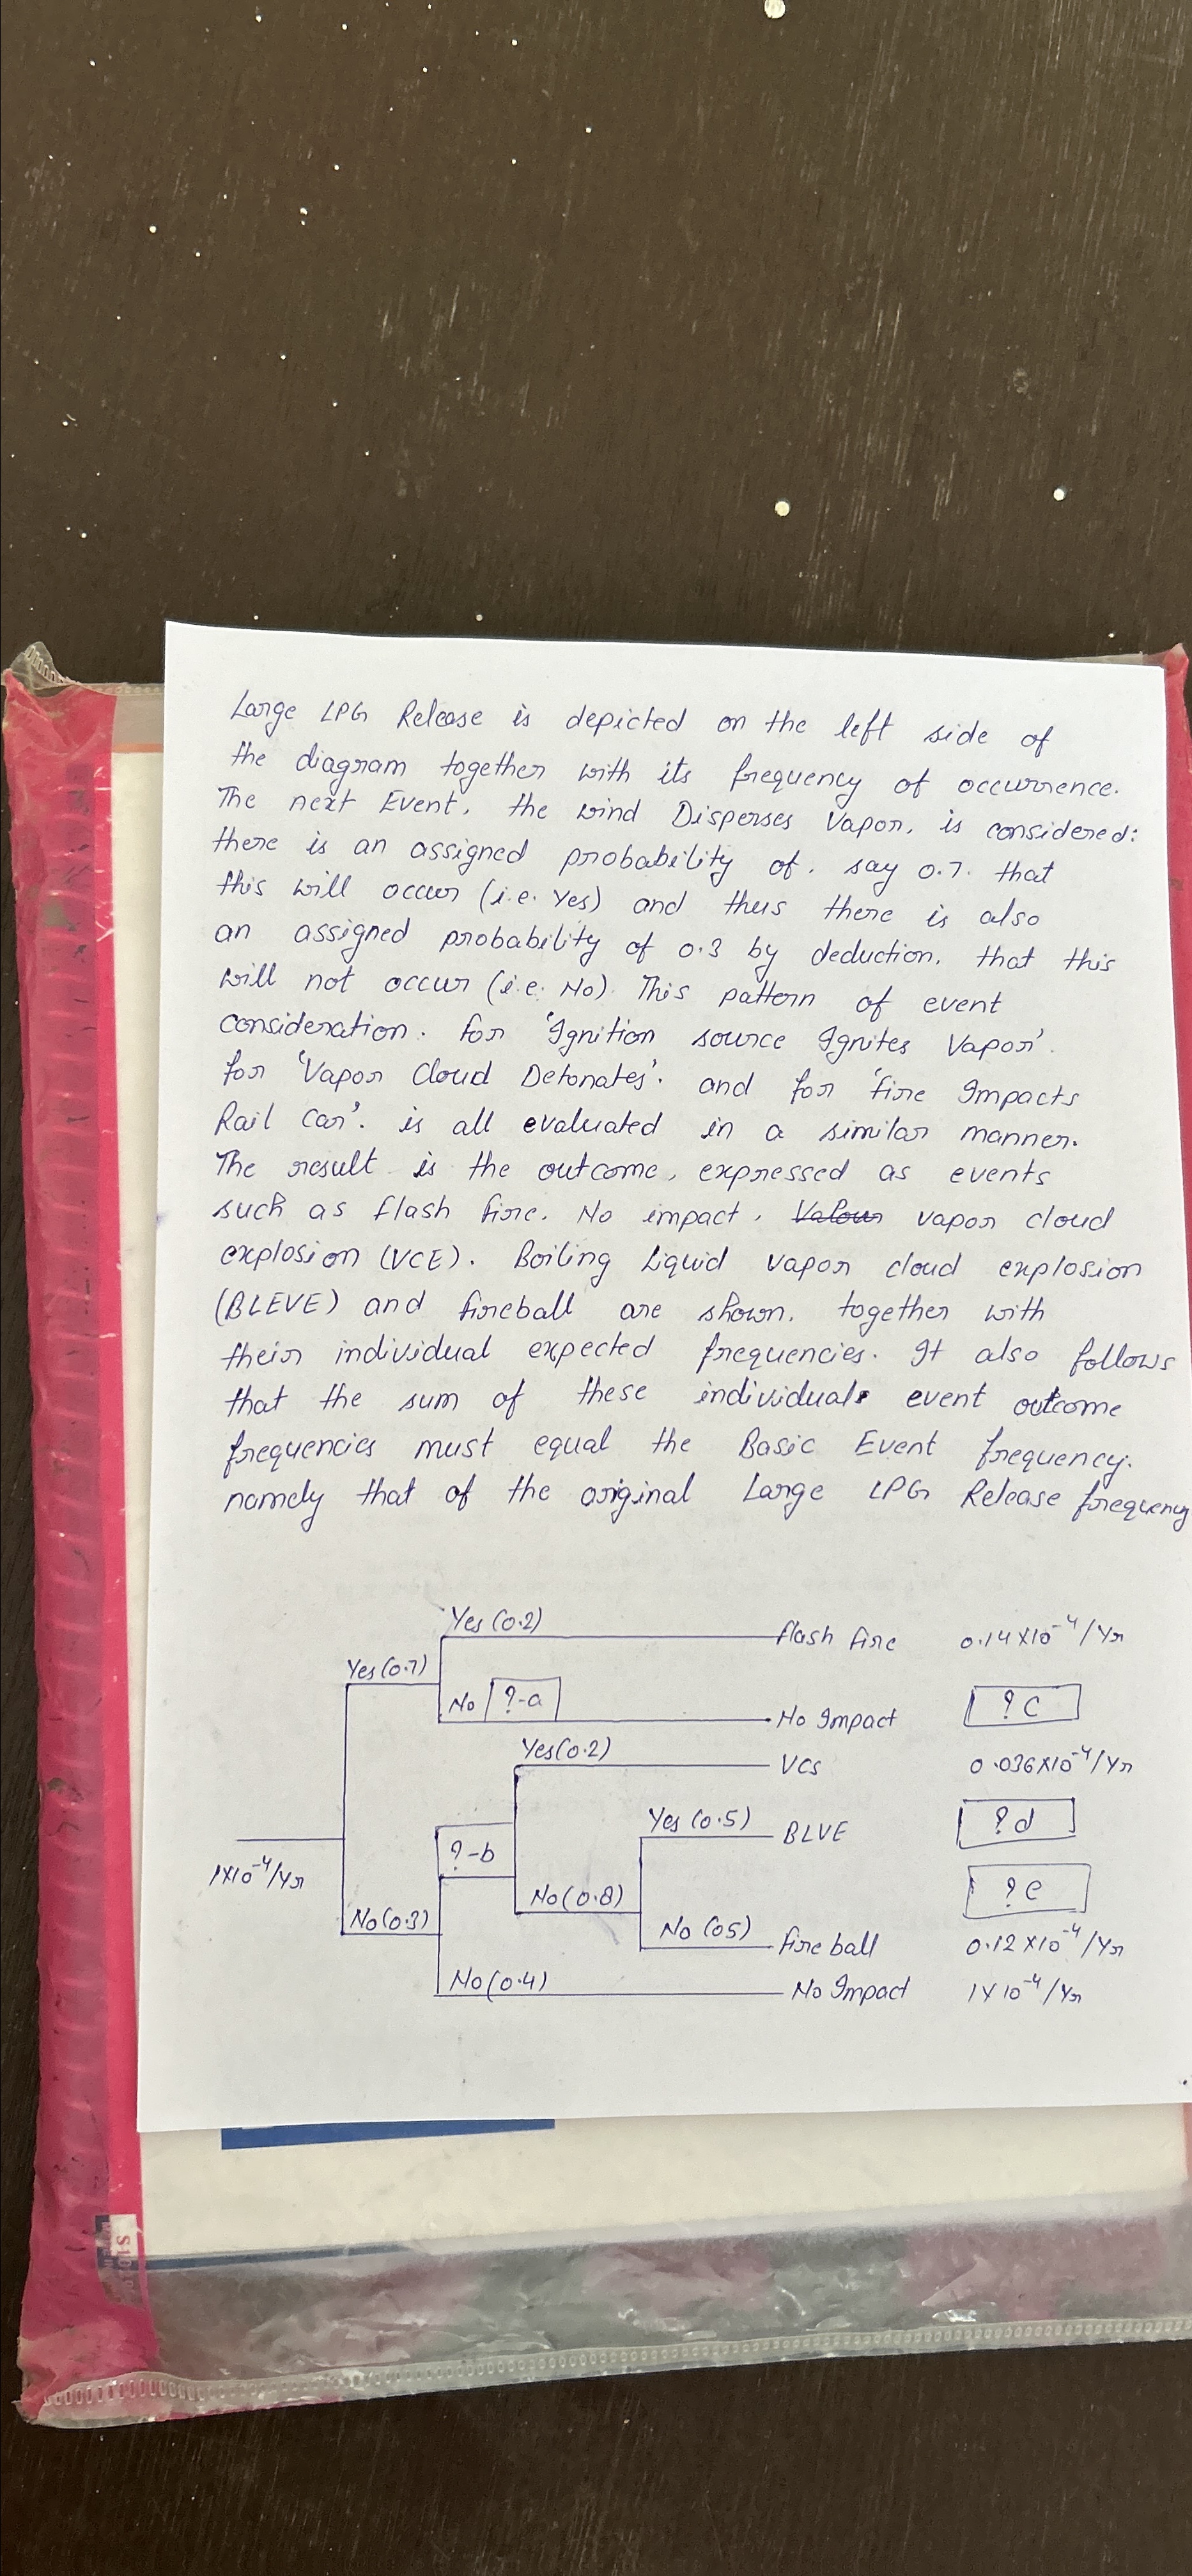 Large LPG Release is depicted on the left side of
the diagram together with its frequency of occurrence.
The next Event, the wind Disperses Vapor, is considered:
there is an assigned probability of, say 0.7. that
this will occur (i.e. Yes) and thus there is also
an assigned probability of 0.3 by deduction, that this
will not occur (i.e. No). This pattern of event
consideration. for 'Ignition source Ignites Vapor'.
for 'Vapor Cloud Detonates'. and for 'fire Impacts
Rail Car'. is all evaluated in a similar manner.
The result is the outcome, expressed as events
such as flash fire. No impact, vapor cloud
explosion (VCE). Boiling Liquid vapor cloud explosion
(BLEVE) and fireball are shown, together with
their individual expected frequencies. It also follows
that the sum of these individual event outcome
frequencies must equal the Basic Event frequency.
namely that of the original Large LPG Release frequency
Yes (0.2) flash fire 0.14X10⁻⁴/Yr
Yes (0.7)
No ?-a No Impact ? C
Yes (0.2) VCs 0.036X10⁻⁴/Yr
Yes (0.5) BLVE ? d
?-b
1X10⁻⁴/Yr
No (0.8) ? e
No (0.3) No (05) fire ball 0.12X10⁻⁴/Yr
No (0.4) No Impact 1X10⁻⁴/Yr